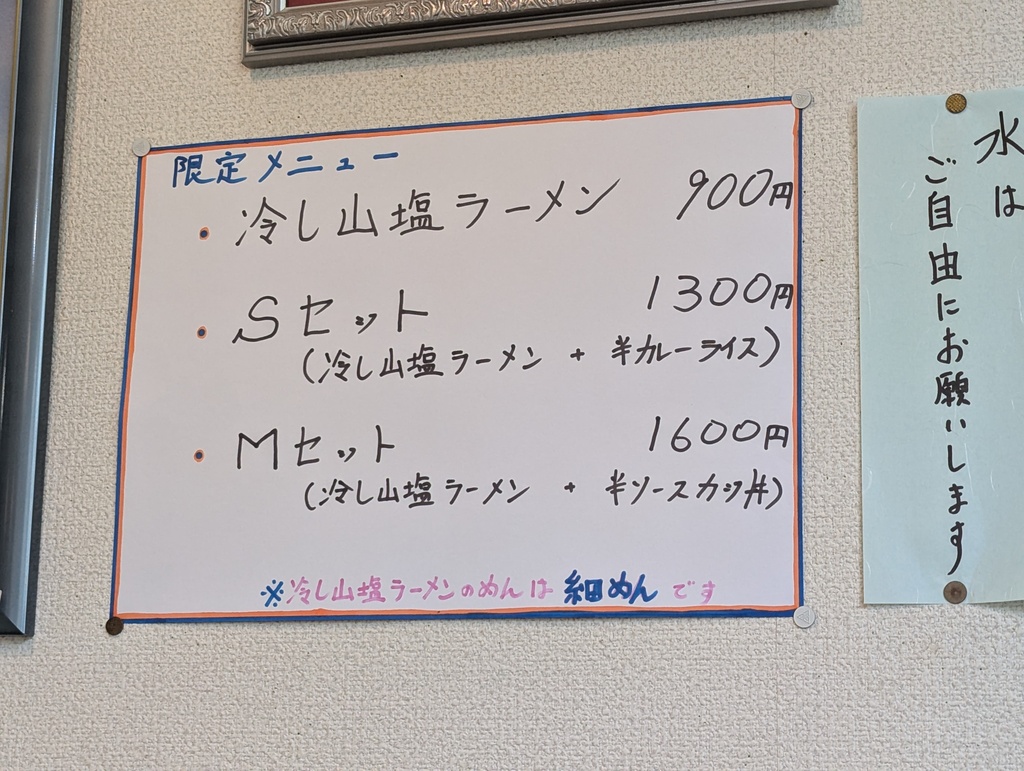 限定メニュー
・冷し山塩ラーメン 900円
・Sセット 1300円
(冷し山塩ラーメン + 半カレーライス)
・Mセット 1600円
(冷し山塩ラーメン + 半ソースカツ丼)
※冷し山塩ラーメンのめんは細めんです
水は
ご自由にお願いします